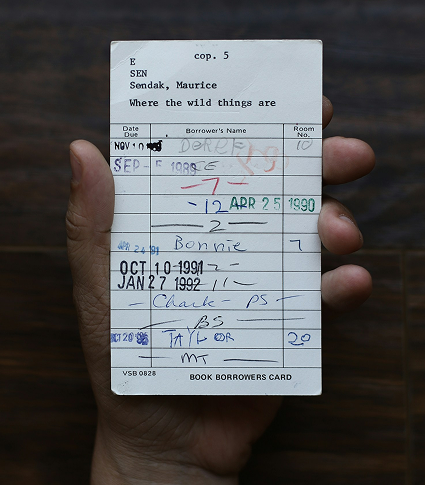 cop. 5
E
SEN
Sendak, Maurice
Where the wild things are
Date Due Borrower's Name Room No.
NOV 10 DEREK 10
SEP - 5 1989
- 7 -
- 12 APR 25 1990
— 2 —
APR 24 91 Bonnie 7
OCT 10 1991 2 -
JAN 27 1992 11 -
- Chark - PS -
- BS -
OCT 20 TAYLOR 20
- MT -
VSB 0828 BOOK BORROWERS CARD